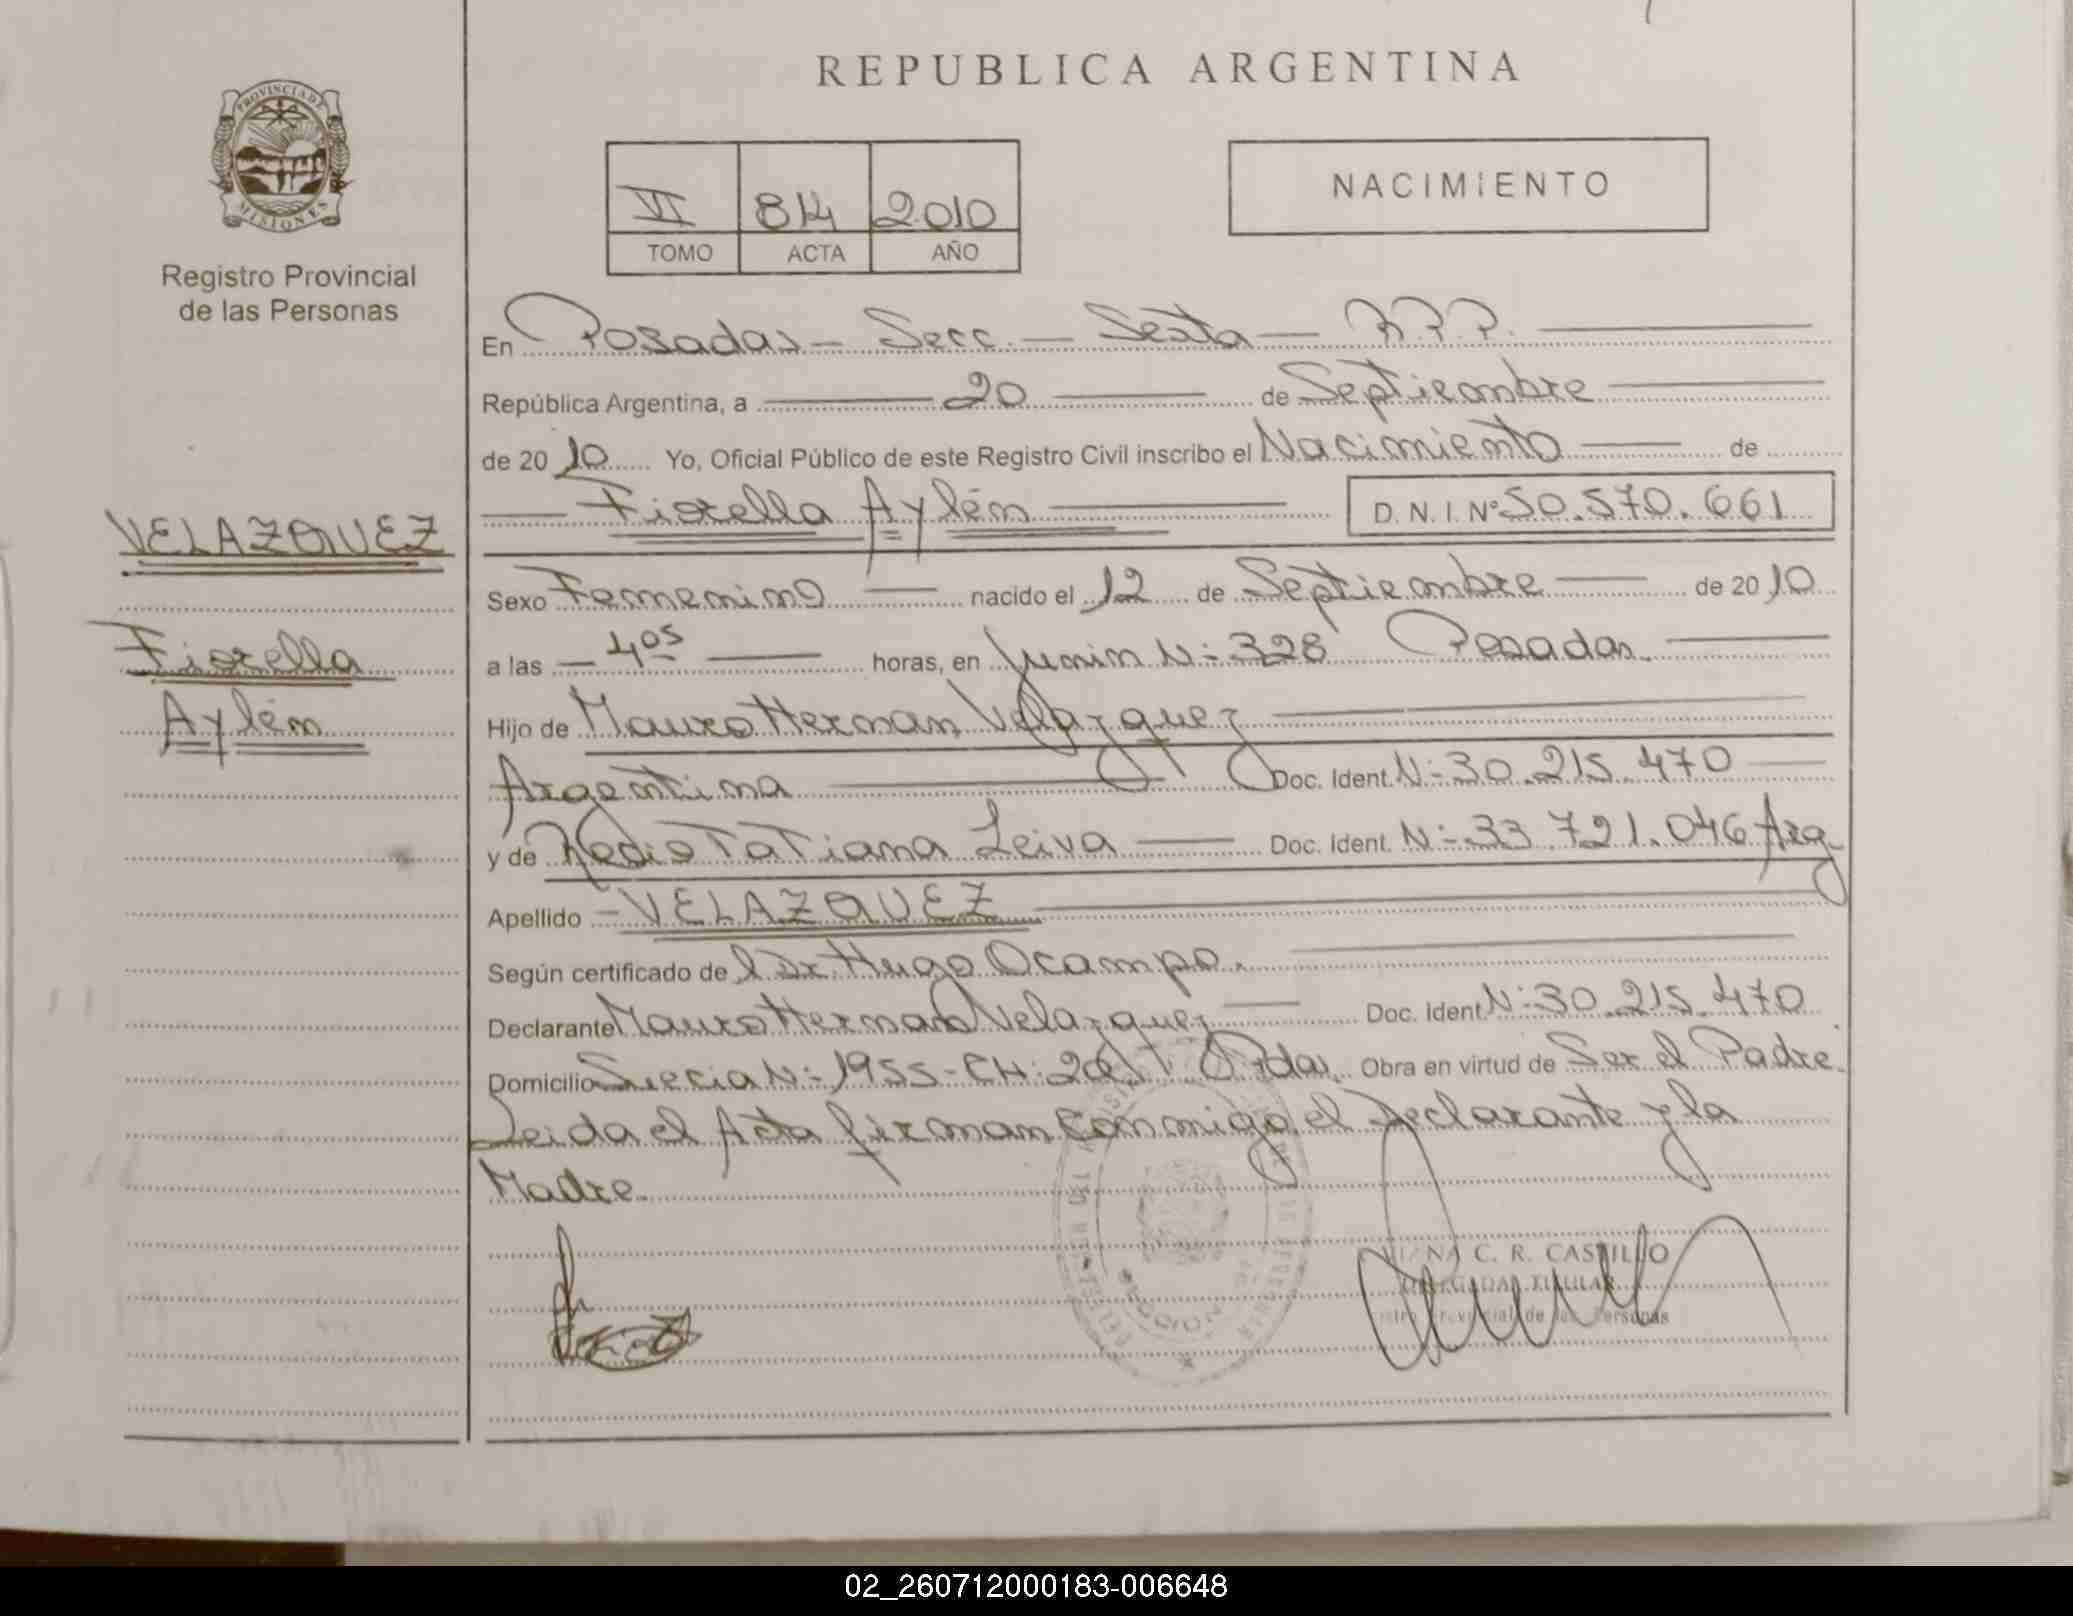 REPUBLICA ARGENTINA
PROVINCIA DE MISIONES
Registro Provincial
de las Personas
VI 814 2010
TOMO ACTA AÑO
NACIMIENTO
En Posadas - Secc. - Sexta - R.P.P.
República Argentina, a 20 de Septiembre
de 2010 Yo, Oficial Público de este Registro Civil inscribo el Nacimiento de
Fiorella Aylén D. N. I. Nº 50.570.661
VELAZQUEZ
Fiorella
Aylén
Sexo Femenino nacido el 12 de Septiembre de 2010
a las 4 05 horas, en Junin Nº 328 Posadas.
Hijo de Mauro Hernan Velazquez
Argentina Doc. Ident. Nº 30.215.470
y de Tatiana Leiva Doc. Ident. Nº 33.721.046 Arg
Apellido VELAZQUEZ
Según certificado del Dr Hugo Ocampo.
Declarante Mauro Hernan Velazquez Doc. Ident Nº 30.215.470
Domicilio Suecia Nº 1955 - CH: Pdas. Obra en virtud de Ser el Padre.
Leida el Acta firman conmigo el Declarante y la
Madre.
C. R. CASTILLO
DELEGADA TITULAR
Registro Provincial de las Personas
02_260712000183-006648